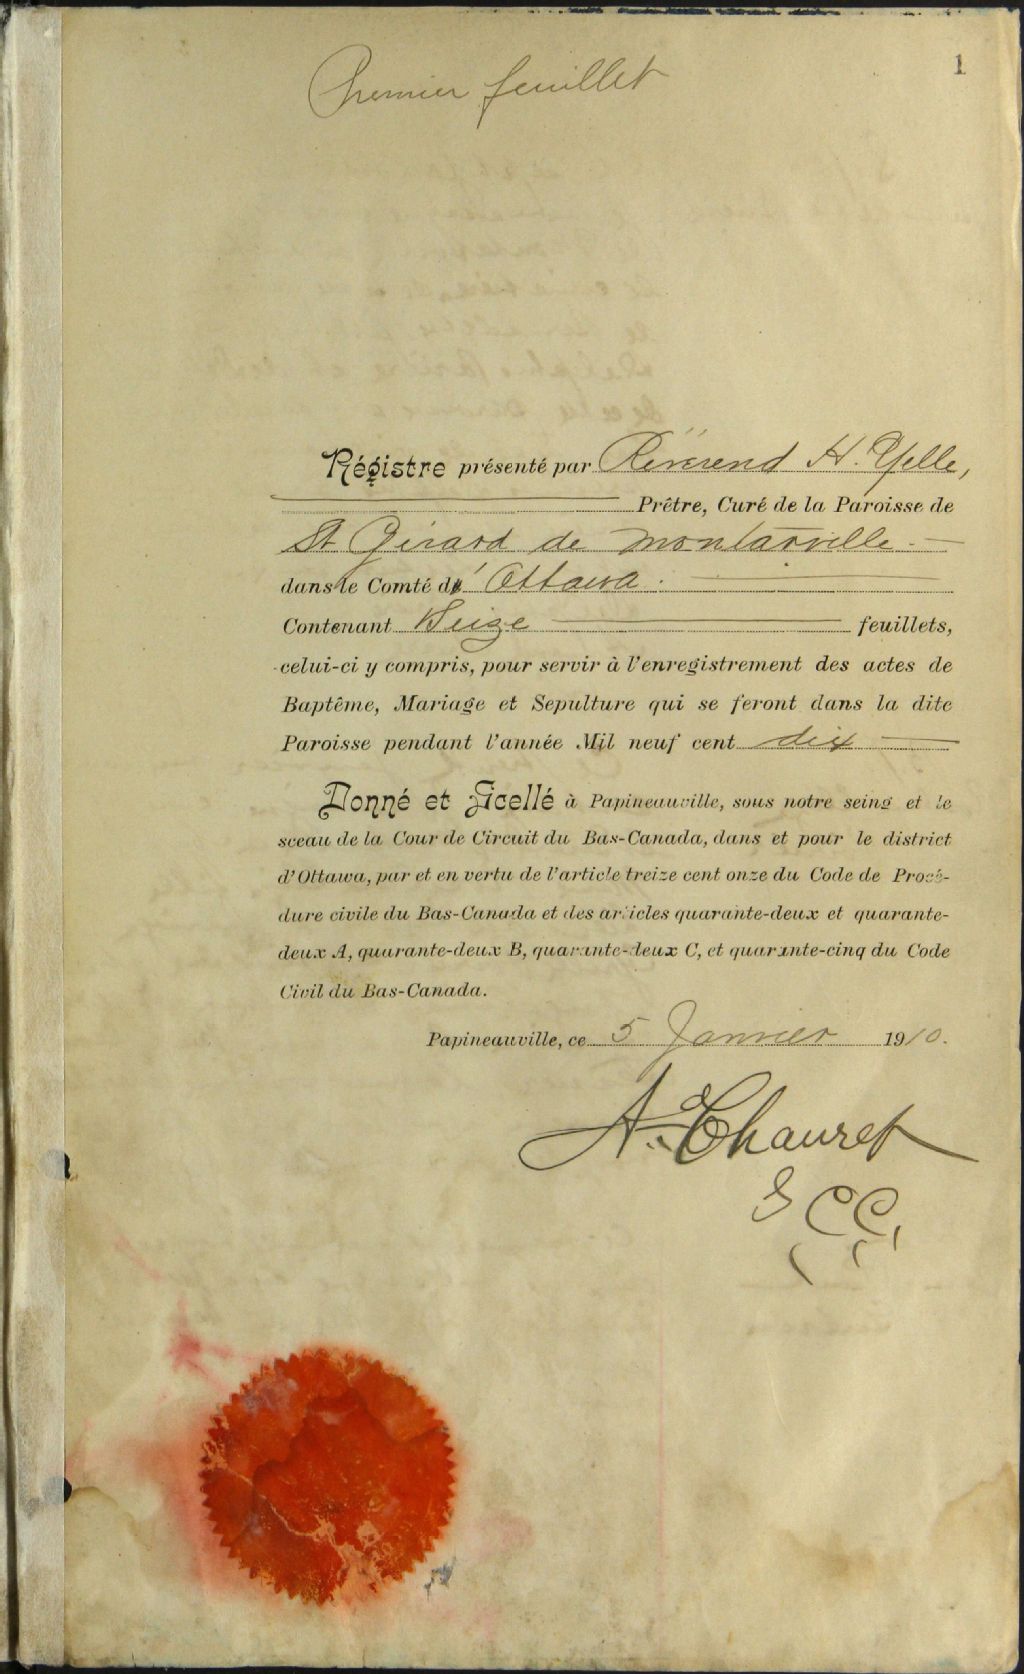 1
Premier feuillet
Régistre présenté par Révérend H. Yelle,
Prêtre, Curé de la Paroisse de
St Gérard de Montarville
dans le Comté d' Ottawa.
Contenant Seize feuillets,
celui-ci y compris, pour servir à l'enregistrement des actes de
Baptême, Mariage et Sepulture qui se feront dans la dite
Paroisse pendant l'année Mil neuf cent dix
Donné et Scellé à Papineauville, sous notre seing et le
sceau de la Cour de Circuit du Bas-Canada, dans et pour le district
d'Ottawa, par et en vertu de l'article treize cent onze du Code de Procé-
dure civile du Bas-Canada et des articles quarante-deux et quarante-
deux A, quarante-deux B, quarante-deux C, et quarante-cinq du Code
Civil du Bas-Canada.
Papineauville, ce 5 Janvier 1910.
A. Chauret
G C C,